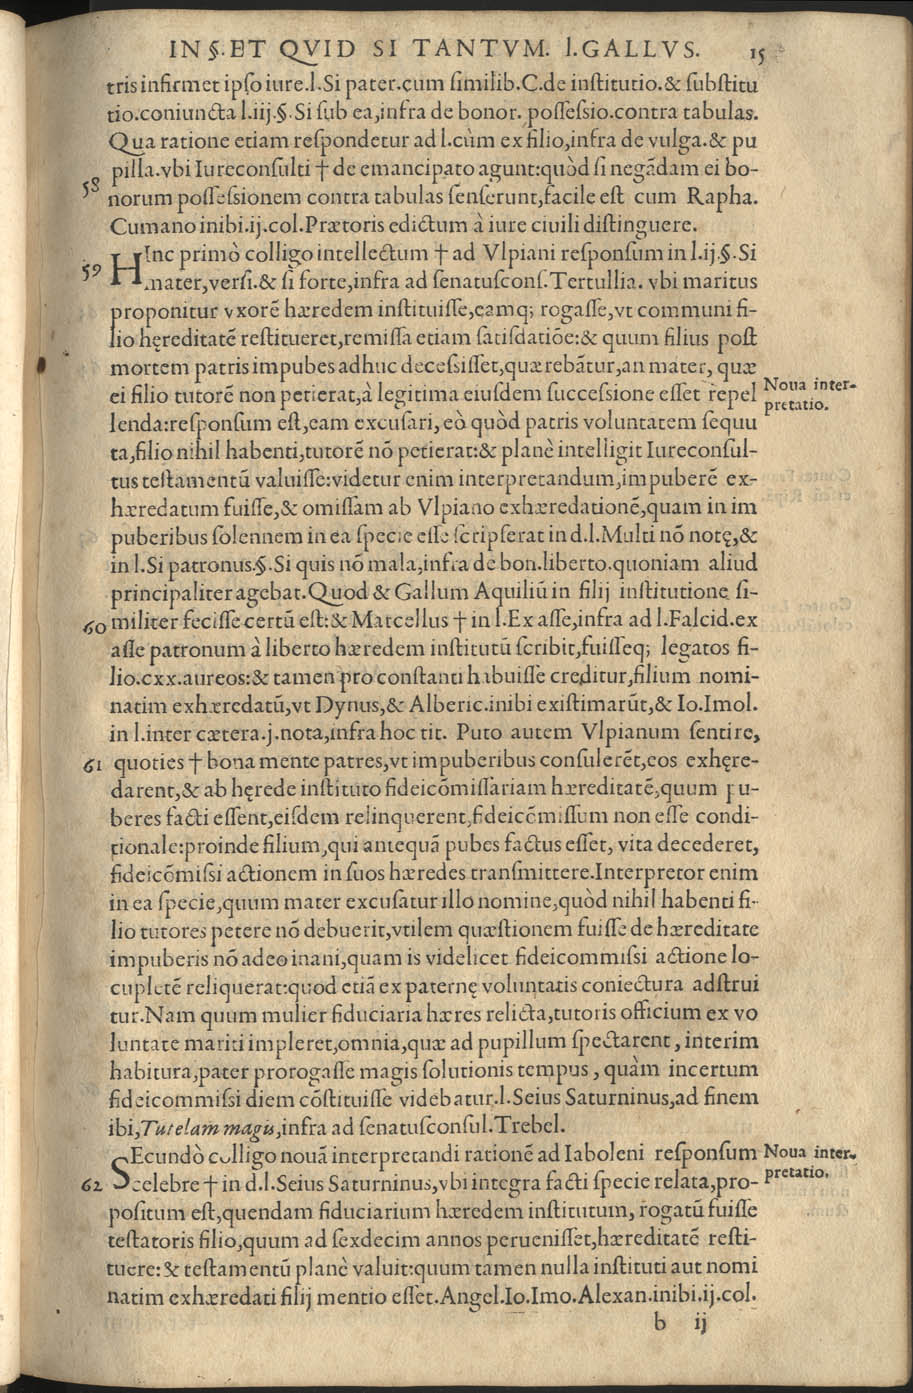 IN §. ET QVID SI TANTVM. l. GALLVS. 15
tris infirmet ipſo iure.l.Si pater.cum ſimilib.C.de inſtitutio.& ſubſtitu
tio.coniuncta l.iij.§.Si ſub ea,infra de bonor. poſſeſsio.contra tabulas.
Qua ratione etiam reſpondetur ad l.cùm ex filio,infra de vulga.& pu
pilla.vbi Iureconſulti † de emancipato agunt:quòd ſi negãdam ei bo-
58 norum poſſeſsionem contra tabulas ſenſerunt,facile eſt cum Rapha.
Cumano inibi.ij.col.Prætoris edictum à iure ciuili diſtinguere.
HInc primò colligo intellectum † ad Vlpiani reſponſum in l.ij.§.Si
59 mater,verſi.& ſi forte,infra ad ſenatuſconſ.Tertullia. vbi maritus
proponitur vxorẽ hæredem inſtituiſſe,eamq; rogaſſe,vt communi fi-
lio hęreditatẽ reſtitueret,remiſſa etiam ſatiſdatiõe:& quum filius poſt
mortem patris impubes adhuc deceſsiſſet,quærebãtur,an mater, quæ
ei filio tutorẽ non petierat,à legitima eiuſdem ſucceſsione eſſet repel
Noua inter-
pretatio.
lenda:reſponſum eſt,eam excuſari,eò quòd patris voluntatem ſequu
ta,filio nihil habenti,tutorẽ nõ petierat:& planè intelligit Iureconſul-
tus teſtamentũ valuiſſe:videtur enim interpretandum,impuberẽ ex-
hæredatum fuiſſe,& omiſſam ab Vlpiano exhæredationẽ,quam in im
puberibus ſolennem in ea ſpecie eſſe ſcripſerat in d.l.Multi nõ notę,&
in l.Si patronus.§.Si quis nõ mala,infra de bon.liberto.quoniam aliud
principaliter agebat.Quod & Gallum Aquiliũ in filij inſtitutione ſi-
60 militer feciſſe certũ eſt:& Marcellus † in l.Ex aſſe,infra ad l.Falcid.ex
aſſe patronum à liberto hæredem inſtitutũ ſcribit,fuiſſeq; legatos fi-
lio.cxx.aureos:& tamen pro conſtanti habuiſſe creditur,filium nomi-
natim exhæredatũ,vt Dynus,& Alberic.inibi exiſtimarũt,& Io.Imol.
in l.inter cætera.j.nota,infra hoc tit. Puto autem Vlpianum ſentire,
61 quoties † bona mente patres,vt impuberibus conſulerẽt,eos exhęre-
darent,& ab hęrede inſtituto fideicõmiſſariam hæreditatẽ,quum pu-
beres facti eſſent,eiſdem relinquerent,fideicõmiſſum non eſſe condi-
tionale:proinde filium,qui antequã pubes factus eſſet, vita decederet,
fideicõmiſsi actionem in ſuos hæredes tranſmittere.Interpretor enim
in ea ſpecie,quum mater excuſatur illo nomine,quòd nihil habenti fi-
lio tutores petere nõ debuerit,vtilem quæſtionem fuiſſe de hæreditate
impuberis nõ adeo inani,quam is videlicet fideicommiſsi actione lo-
cupletẽ reliquerat:quod etiã ex paternę voluntatis coniectura adſtrui
tur.Nam quum mulier fiduciaria hæres relicta,tutoris officium ex vo
luntate mariti impleret,omnia,quæ ad pupillum ſpectarent, interim
habitura,pater prorogaſſe magis ſolutionis tempus, quàm incertum
fideicommiſsi diem cõſtituiſſe videbatur.l.Seius Saturninus,ad finem
ibi,Tutelam magis,infra ad ſenatuſconſul.Trebel.
SEcundò colligo nouã interpretandi rationẽ ad Iaboleni reſponſum
Noua inter-
pretatio.
62 celebre † in d.l.Seius Saturninus,vbi integra facti ſpecie relata,pro-
poſitum eſt,quendam fiduciarium hæredem inſtitutum, rogatũ fuiſſe
teſtatoris filio,quum ad ſexdecim annos perueniſſet,hæreditatẽ reſti-
tuere:& teſtamentũ planè valuit:quum tamen nulla inſtituti aut nomi
natim exhæredati filij mentio eſſet.Angel.Io.Imo.Alexan.inibi.ij.col.
b ij